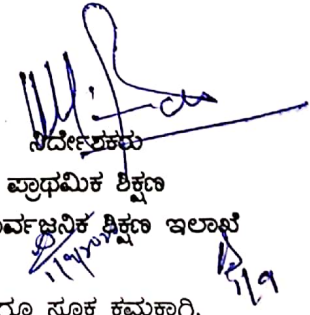 ನಿರ್ದೇಶಕರು
ಪ್ರಾಥಮಿಕ ಶಿಕ್ಷಣ
ರ್ವಜನಿಕ ಶಿಕ್ಷಣ ಇಲಾಖೆ
1/9
ಸೂಕ್ತ ಕ್ರಮಕ್ಕಾಗಿ.